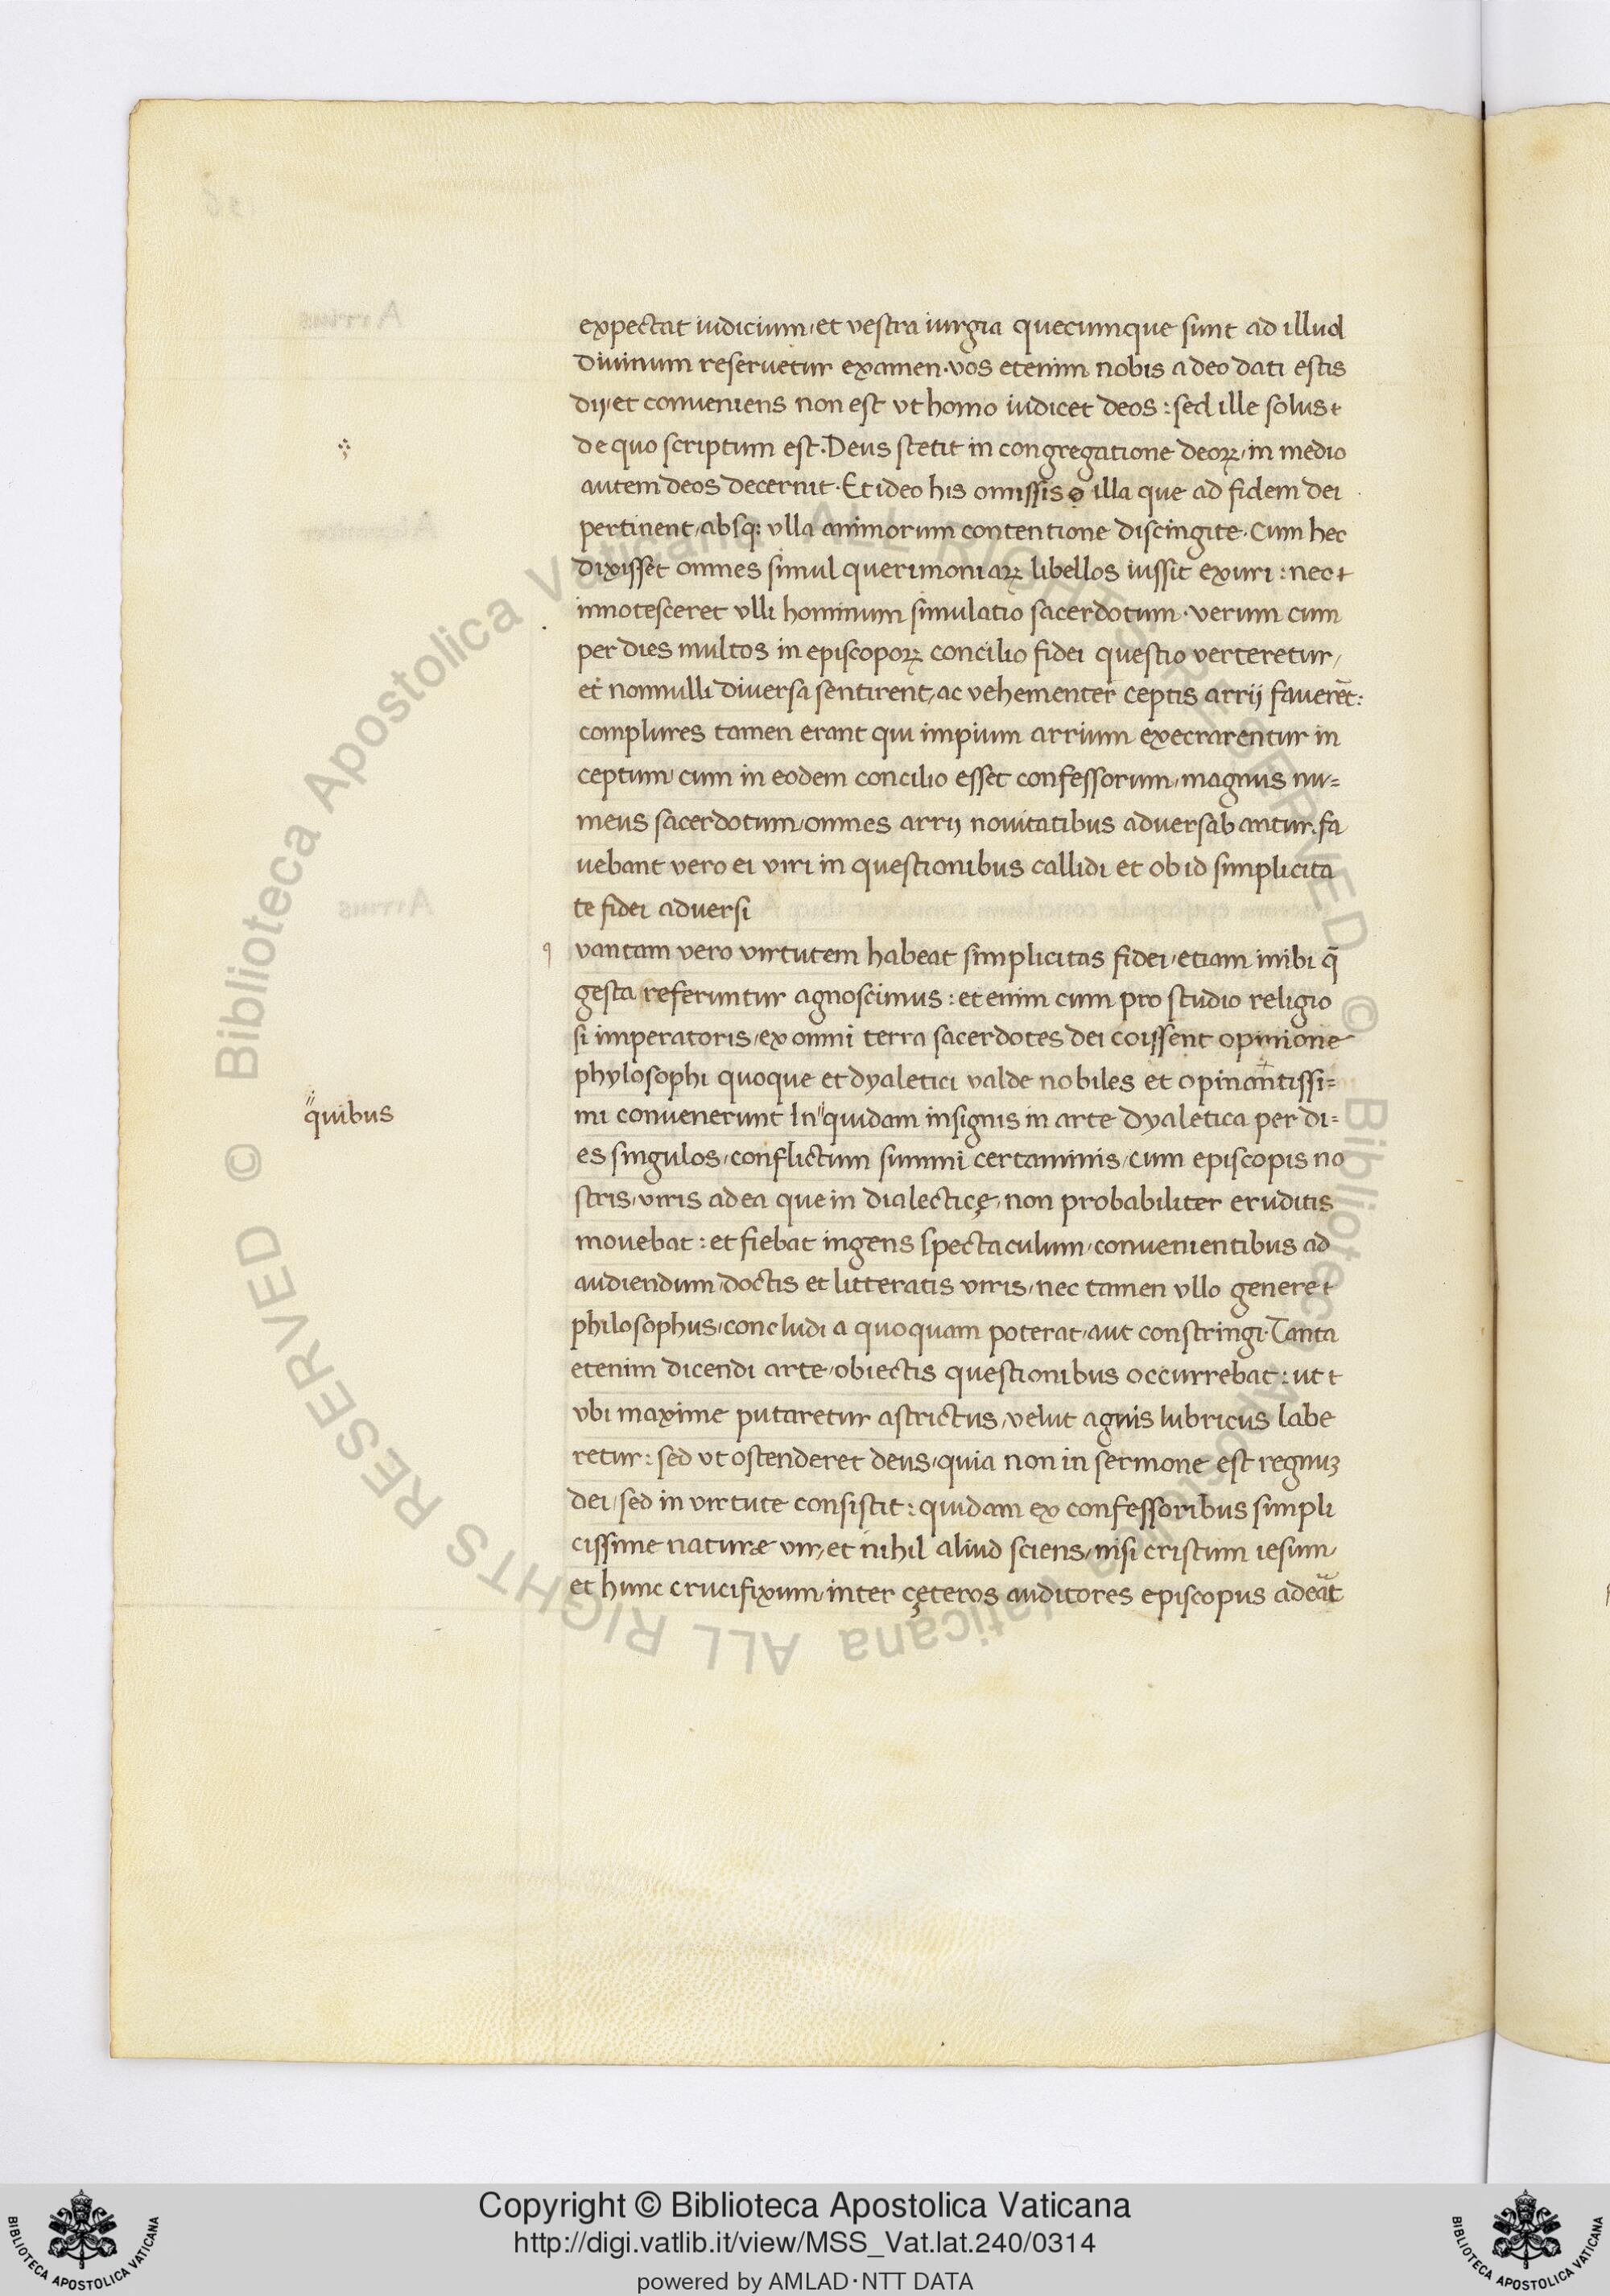 expectat iudicium, et vestra iurgia quecumque sunt ad illud
diuinum reseruetur examen. vos etenim nobis a deo dati estis
dij, et conueniens non est vt homo iudicet deos: sed ille solus
de quo scriptum est. Deus stetit in congregatione deoꝝ, in medio
autem deos decernit. Et ideo his omissis illa que ad fidem dei
pertinent, absqꝫ vlla animorum contentione discingite. Cum hec
dixisset omnes simul querimoniaꝝ libellos iussit exuri: nec
innotesceret vlli hominum simulatio sacerdotum. verum cum
per dies multos in episcopoꝝ concilio fidei questio verteretur,
et nonnulli diuersa sentirent, ac vehementer ceptis arrij fauerēt:
complures tamen erant qui impium arrium execrarentur in
ceptum, cum in eodem concilio esset confessorum, magnus nu=
meus sacerdotum, omnes arrij nouitatibus aduersabantur. fa
uebant vero ei viri in questionibus callidi et ob id simplicita
te fidei aduersi
q vantam vero virtutem habeat simplicitas fidei, etiam inibi q̄
gesta referuntur agnoscimus: et enim cum pro studio religio
si imperatoris, ex omni terra sacerdotes dei coissent opinione
phylosophi quoque et dyaletici valde nobiles et opinantissi=
quibus
mi conuenerunt In" quidam insignis in arte dyaletica per di=
es singulos, conflictum summi certaminis, cum episcopis no
stris, viris ad ea que in dialecticę, non probabiliter eruditis
mouebat: et fiebat ingens spectaculum, conuenientibus ad
audiendum, doctis et litteratis viris, nec tamen vllo genere
philosophus, concludi a quoquam poterat, aut constringi. Tanta
etenim dicendi arte, obiectis questionibus occurrebat: ut
vbi maxime putaretur astrictus, velut aguis lubricus labe
retur: sed vt ostenderet deus, quia non in sermone est regnuꝫ
dei, sed in virtute consistit: quidam ex confessoribus simpli
cissime naturæ vir, et nihil aliud sciens, nisi cristum iesum,
et hunc crucifixum, inter cęteros auditores episcopus adeāt
© Biblioteca Apostolica Vaticana ALL RIGHTS RESERVED © Biblioteca Apostolica Vaticana ALL RIGHTS RESERVED
Copyright © Biblioteca Apostolica Vaticana
http://digi.vatlib.it/view/MSS_Vat.lat.240/0314
powered by AMLAD·NTT DATA
BIBLIOTECA APOSTOLICA VATICANA
BIBLIOTECA APOSTOLICA VATICANA